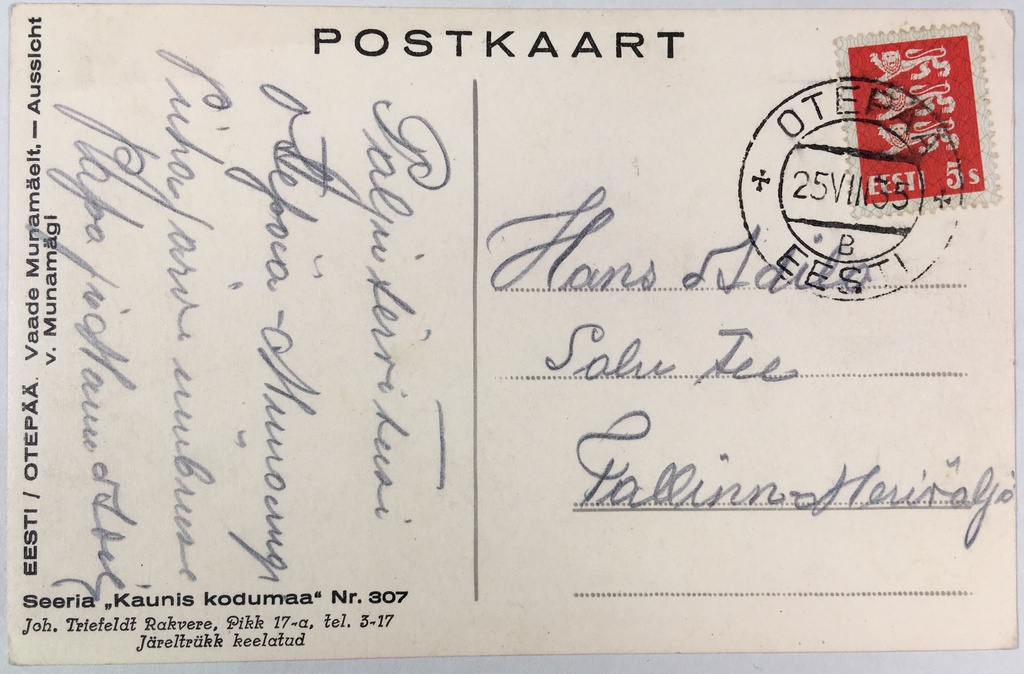 POSTKAART
EESTI / OTEPÄÄ. Vaade Munamäelt. — Aussicht
v. Munamägi
Palju tervitusi
Otepää - Munamägi
Pühajärve ümbruse
Papa ja Mamma
Hans
Salu tee
Tallinn-Meriväljа
OTEPÄÄ
25 VIII 35
B
EESTI
EESTI 5 s
Seeria „Kaunis kodumaa“ Nr. 307
Joh. Triefeldt Rakvere, Pikk 17-a, tel. 3-17
Järeltrükk keelatud